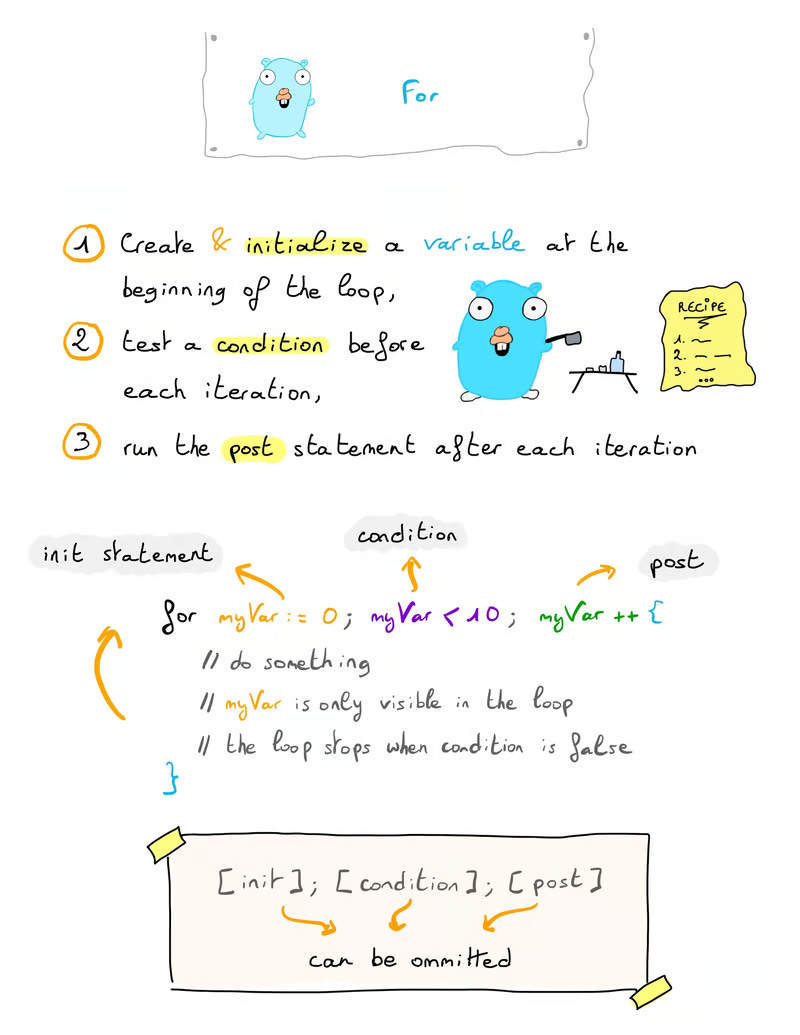 For
1 Create & initialize a variable at the
beginning of the loop,
2 test a condition before
each iteration,
RECIPE
1.
2.
3.
...
3 run the post statement after each iteration
init statement
condition
post
for myVar := 0 ; myVar < 10 ; myVar ++ {
// do something
// myVar is only visible in the loop
// the loop stops when condition is false
}
[init]; [condition]; [post]
can be ommitted